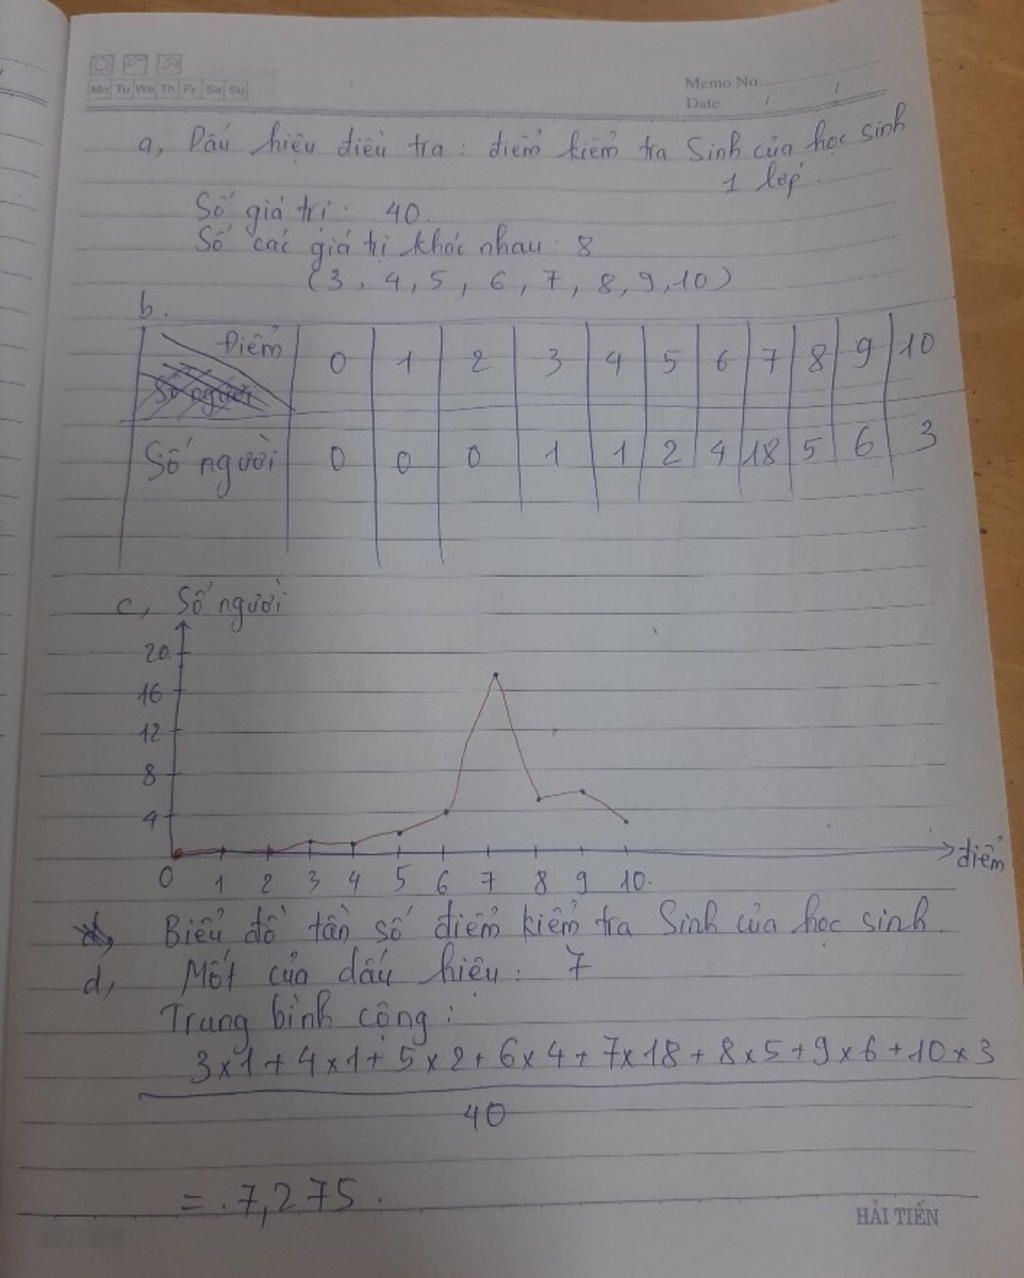 Mo Tu We Th Fr Sa Su
Memo No.
Date / /
a, Dấu hiệu điều tra : điểm kiểm tra Sinh của học sinh
1 lớp.
Số giá trị : 40.
Số các giá trị khác nhau : 8
(3, 4, 5, 6, 7, 8, 9, 10)
b.
Điểm 0 1 2 3 4 5 6 7 8 9 10
Số người
Số người 0 0 0 1 1 2 4 18 5 6 3
c, Số người
20
16
12
8
4
0 1 2 3 4 5 6 7 8 9 10.
điểm
Biểu đồ tần số điểm kiểm tra Sinh của học sinh.
d, Mốt của dấu hiệu : 7
Trung bình cộng :
3x1 + 4x1 + 5x2 + 6x4 + 7x18 + 8x5 + 9x6 + 10x3
40
= 7,275.
HẢI TIẾN